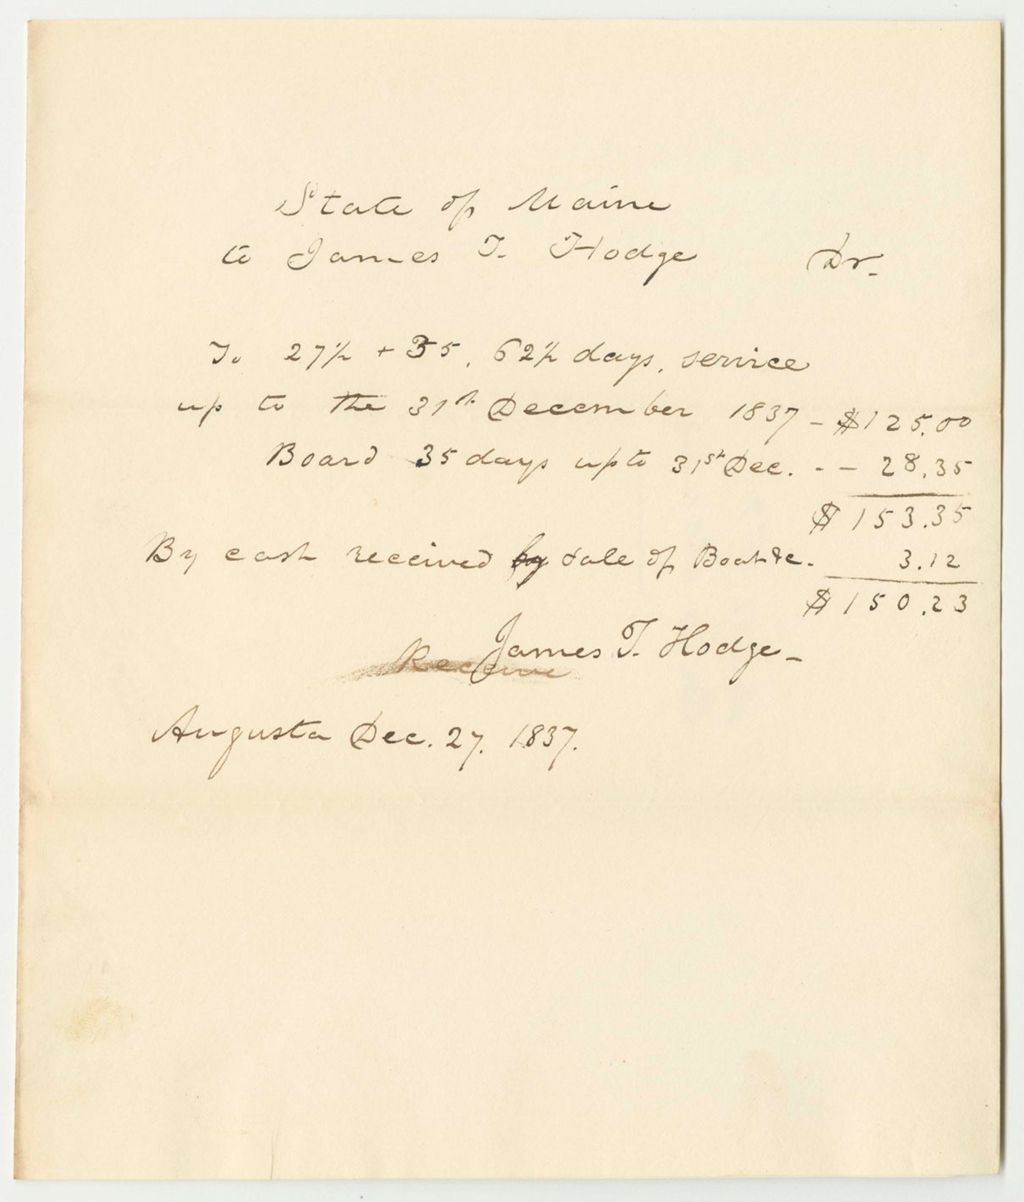 State of Maine
to James T. Hodge Dr.
To 27½ + 35, 62½ days, service
up to the 31st December 1837 - $125.00
Board 35 days up to 31st Dec. - - 28.35
$153.35
By cash received by sale of Boat &c. 3.12
$150.23
James T. Hodge -
Receive
Augusta Dec. 27. 1837.